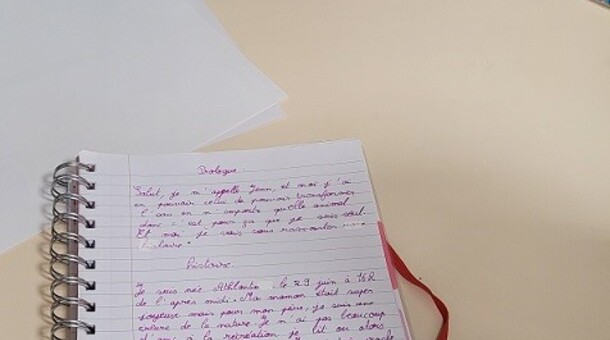 Prologue
Salut, je m'appelle Jenn, et moi j'ai
un pouvoir celui de pouvoir transformer
l'eau en n'importe quelle animal
donc c'est pour ça que je suis seul.
Et moi je vais vous raconter mon
histoire.
histoire
Je suis née le 29 juin à 16h
de l'après midi. Ma maman était super
joyeuse mais pour mon père, je suis une
erreur de la nature. Je n'ai pas beaucoup
d'ami à la récréation je lit ou alors